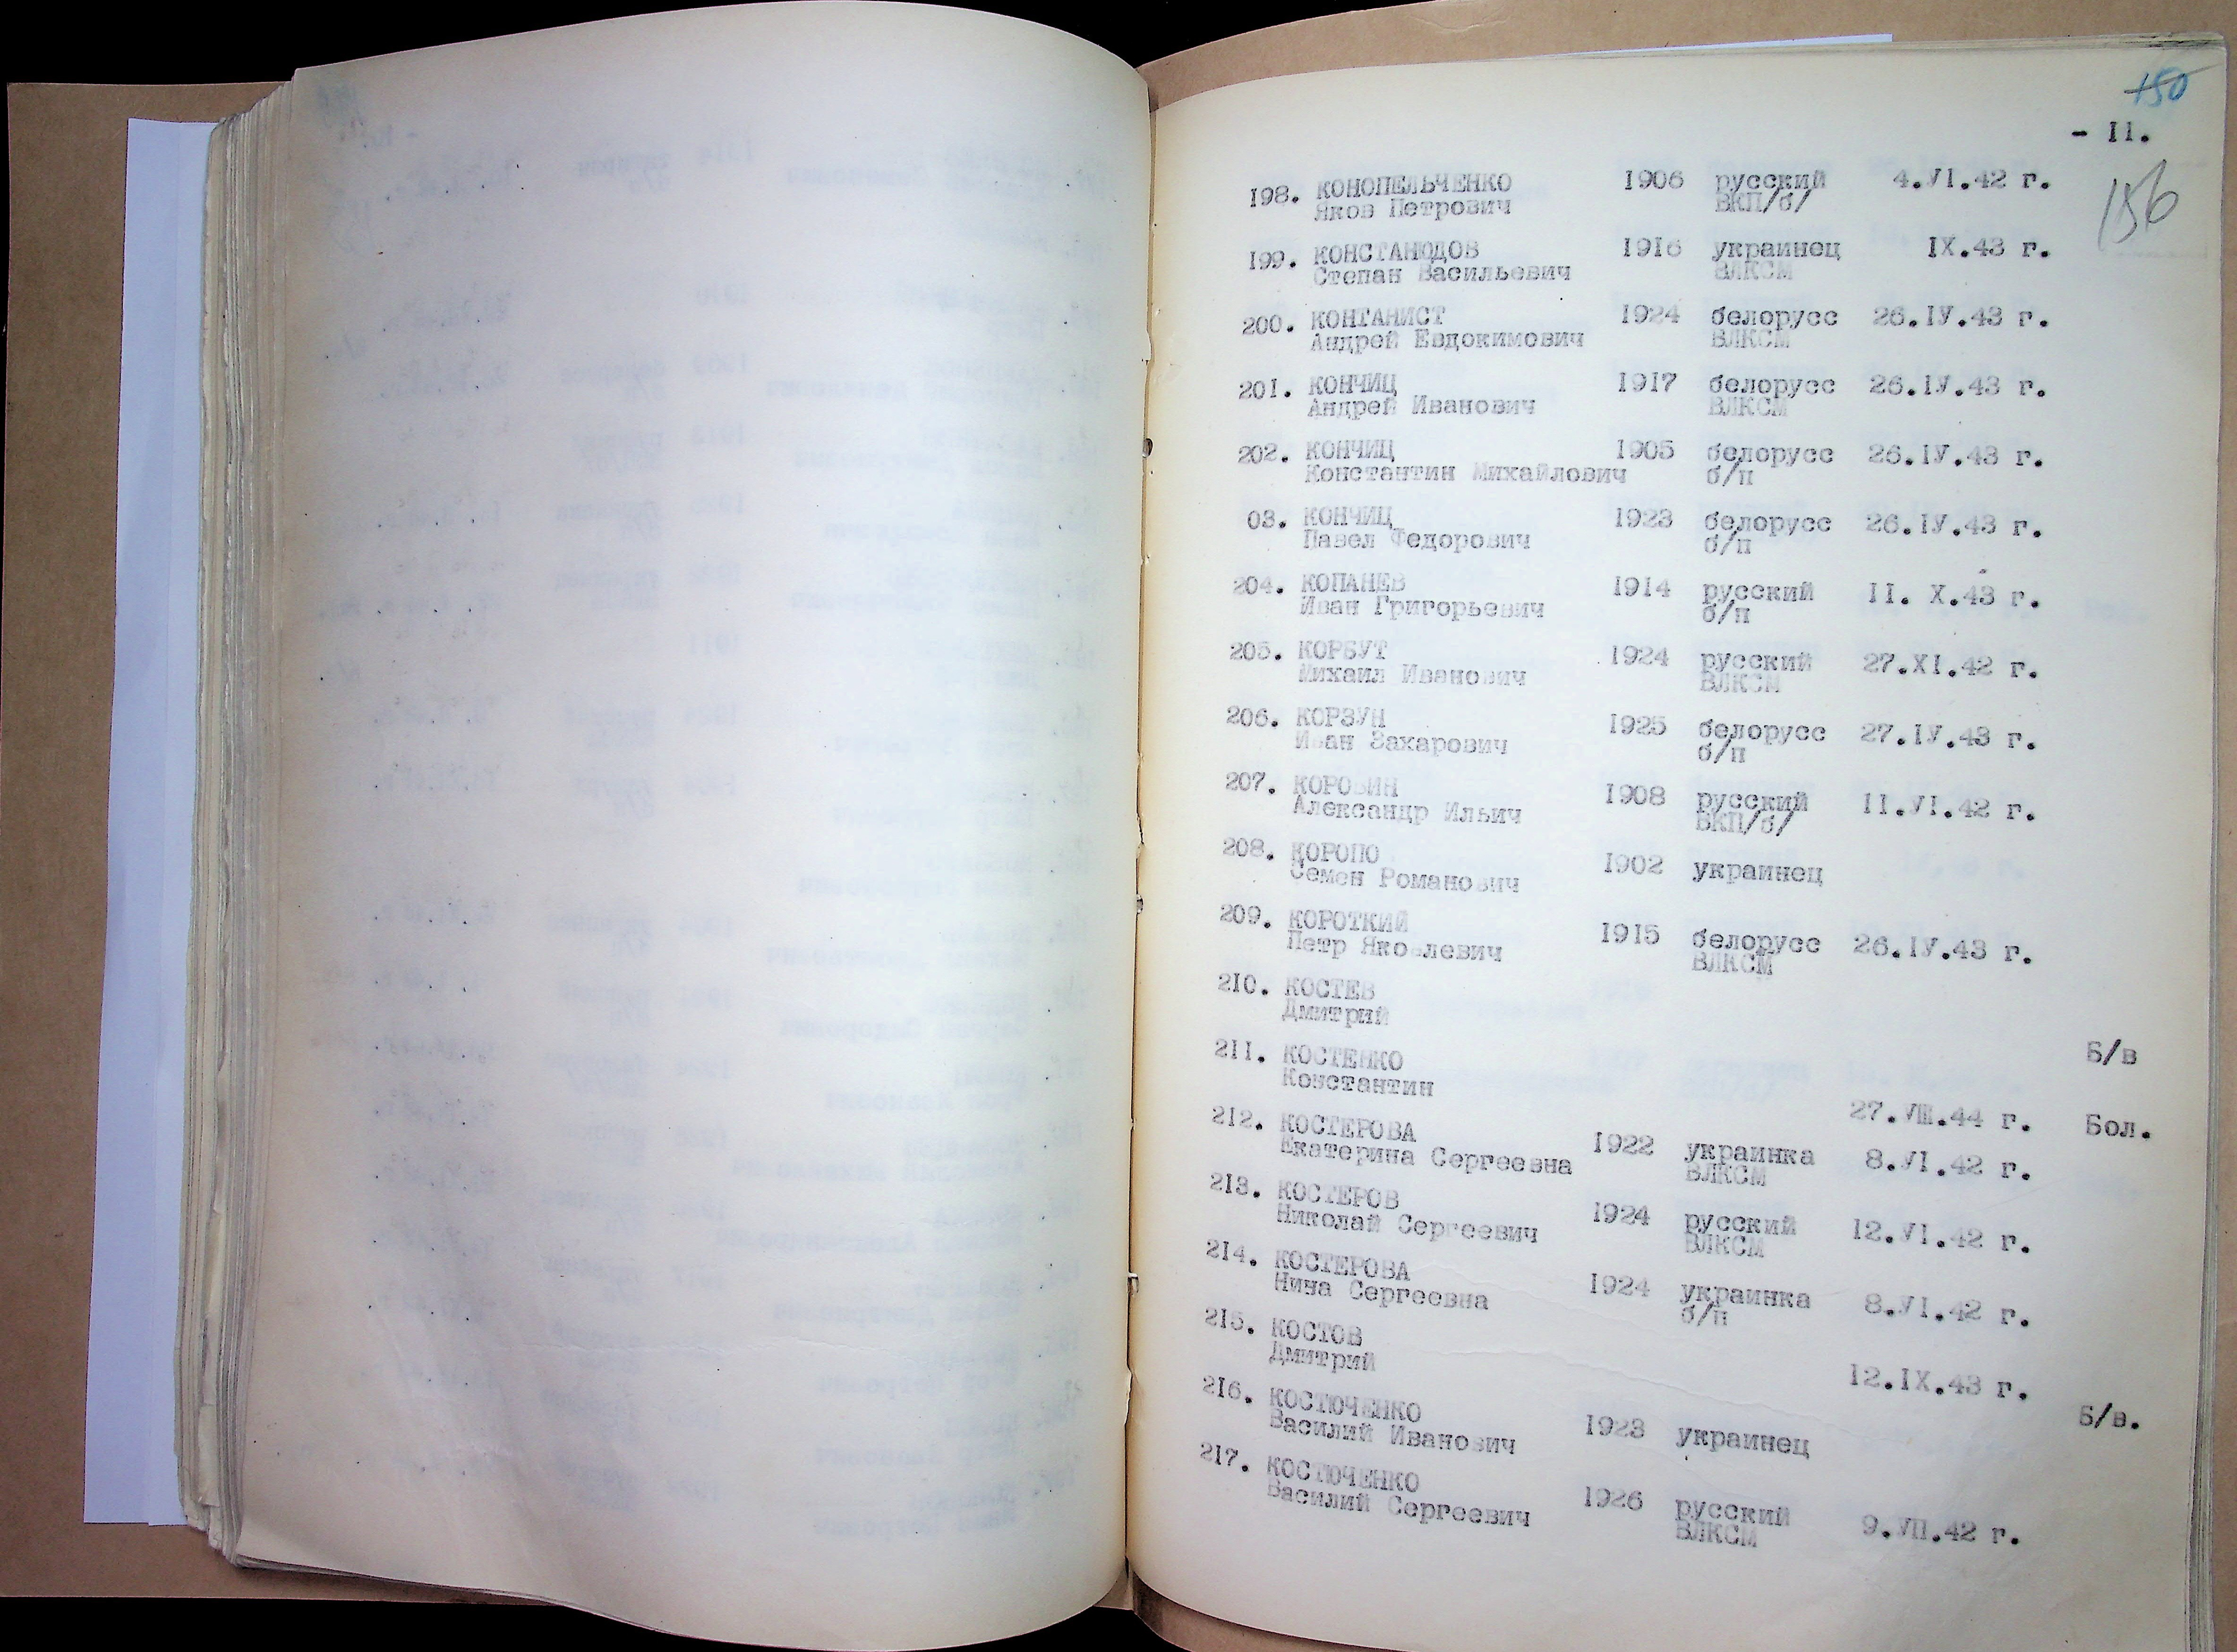 150
- II.
156
198. КОНОПЕЛЬЧЕНКО 1906 русский 4.УІ.42 г.
Яков Петрович ВКП/б/
199. КОНСТАНЮДОВ 1916 украинец IX.43 г.
Степан Васильевич ВЛКСМ
200. КОНТАНИСТ 1924 белорусс 26.ІУ.43 г.
Андрей Евдокимович ВЛКСМ
201. КОНЧИЦ 1917 белорусс 26.ІУ.43 г.
Андрей Иванович ВЛКСМ
202. КОНЧИЦ 1905 белорусс 26.ІУ.43 г.
Константин Михайлович б/п
03. КОНЧИЦ 1923 белорусс 26.ІУ.43 г.
Павел Федорович б/п
204. КОПАНЕВ 1914 русский II. X.43 г.
Иван Григорьевич б/п
205. КОРБУТ 1924 русский 27.XI.42 г.
Михаил Иванович ВЛКСМ
206. КОРЗУН 1925 белорусс 27.ІУ.43 г.
Иван Захарович б/п
207. КОРОВИН 1908 русский II.УІ.42 г.
Александр Ильич ВКП/б/
208. КОРОПО 1902 украинец
Семен Романович
209. КОРОТКИЙ 1915 белорусс 26.ІУ.43 г.
Петр Яковлевич ВЛКСМ
210. КОСТЕВ
Дмитрий Б/в
211. КОСТЕНКО
Константин 27.УШ.44 г. Бол.
212. КОСТЕРОВА 1922 украинка 8.УІ.42 г.
Екатерина Сергеевна ВЛКСМ
213. КОСТЕРОВ 1924 русский 12.УІ.42 г.
Николай Сергеевич ВЛКСМ
214. КОСТЕРОВА 1924 украинка 8.УІ.42 г.
Нина Сергеевна б/п
215. КОСТОВ
Дмитрий 12.IX.43 г.
216. КОСТЮЧЕНКО 1923 украинец Б/в.
Василий Иванович
217. КОСТЮЧЕНКО 1926 русский 9.УП.42 г.
Василий Сергеевич ВЛКСМ